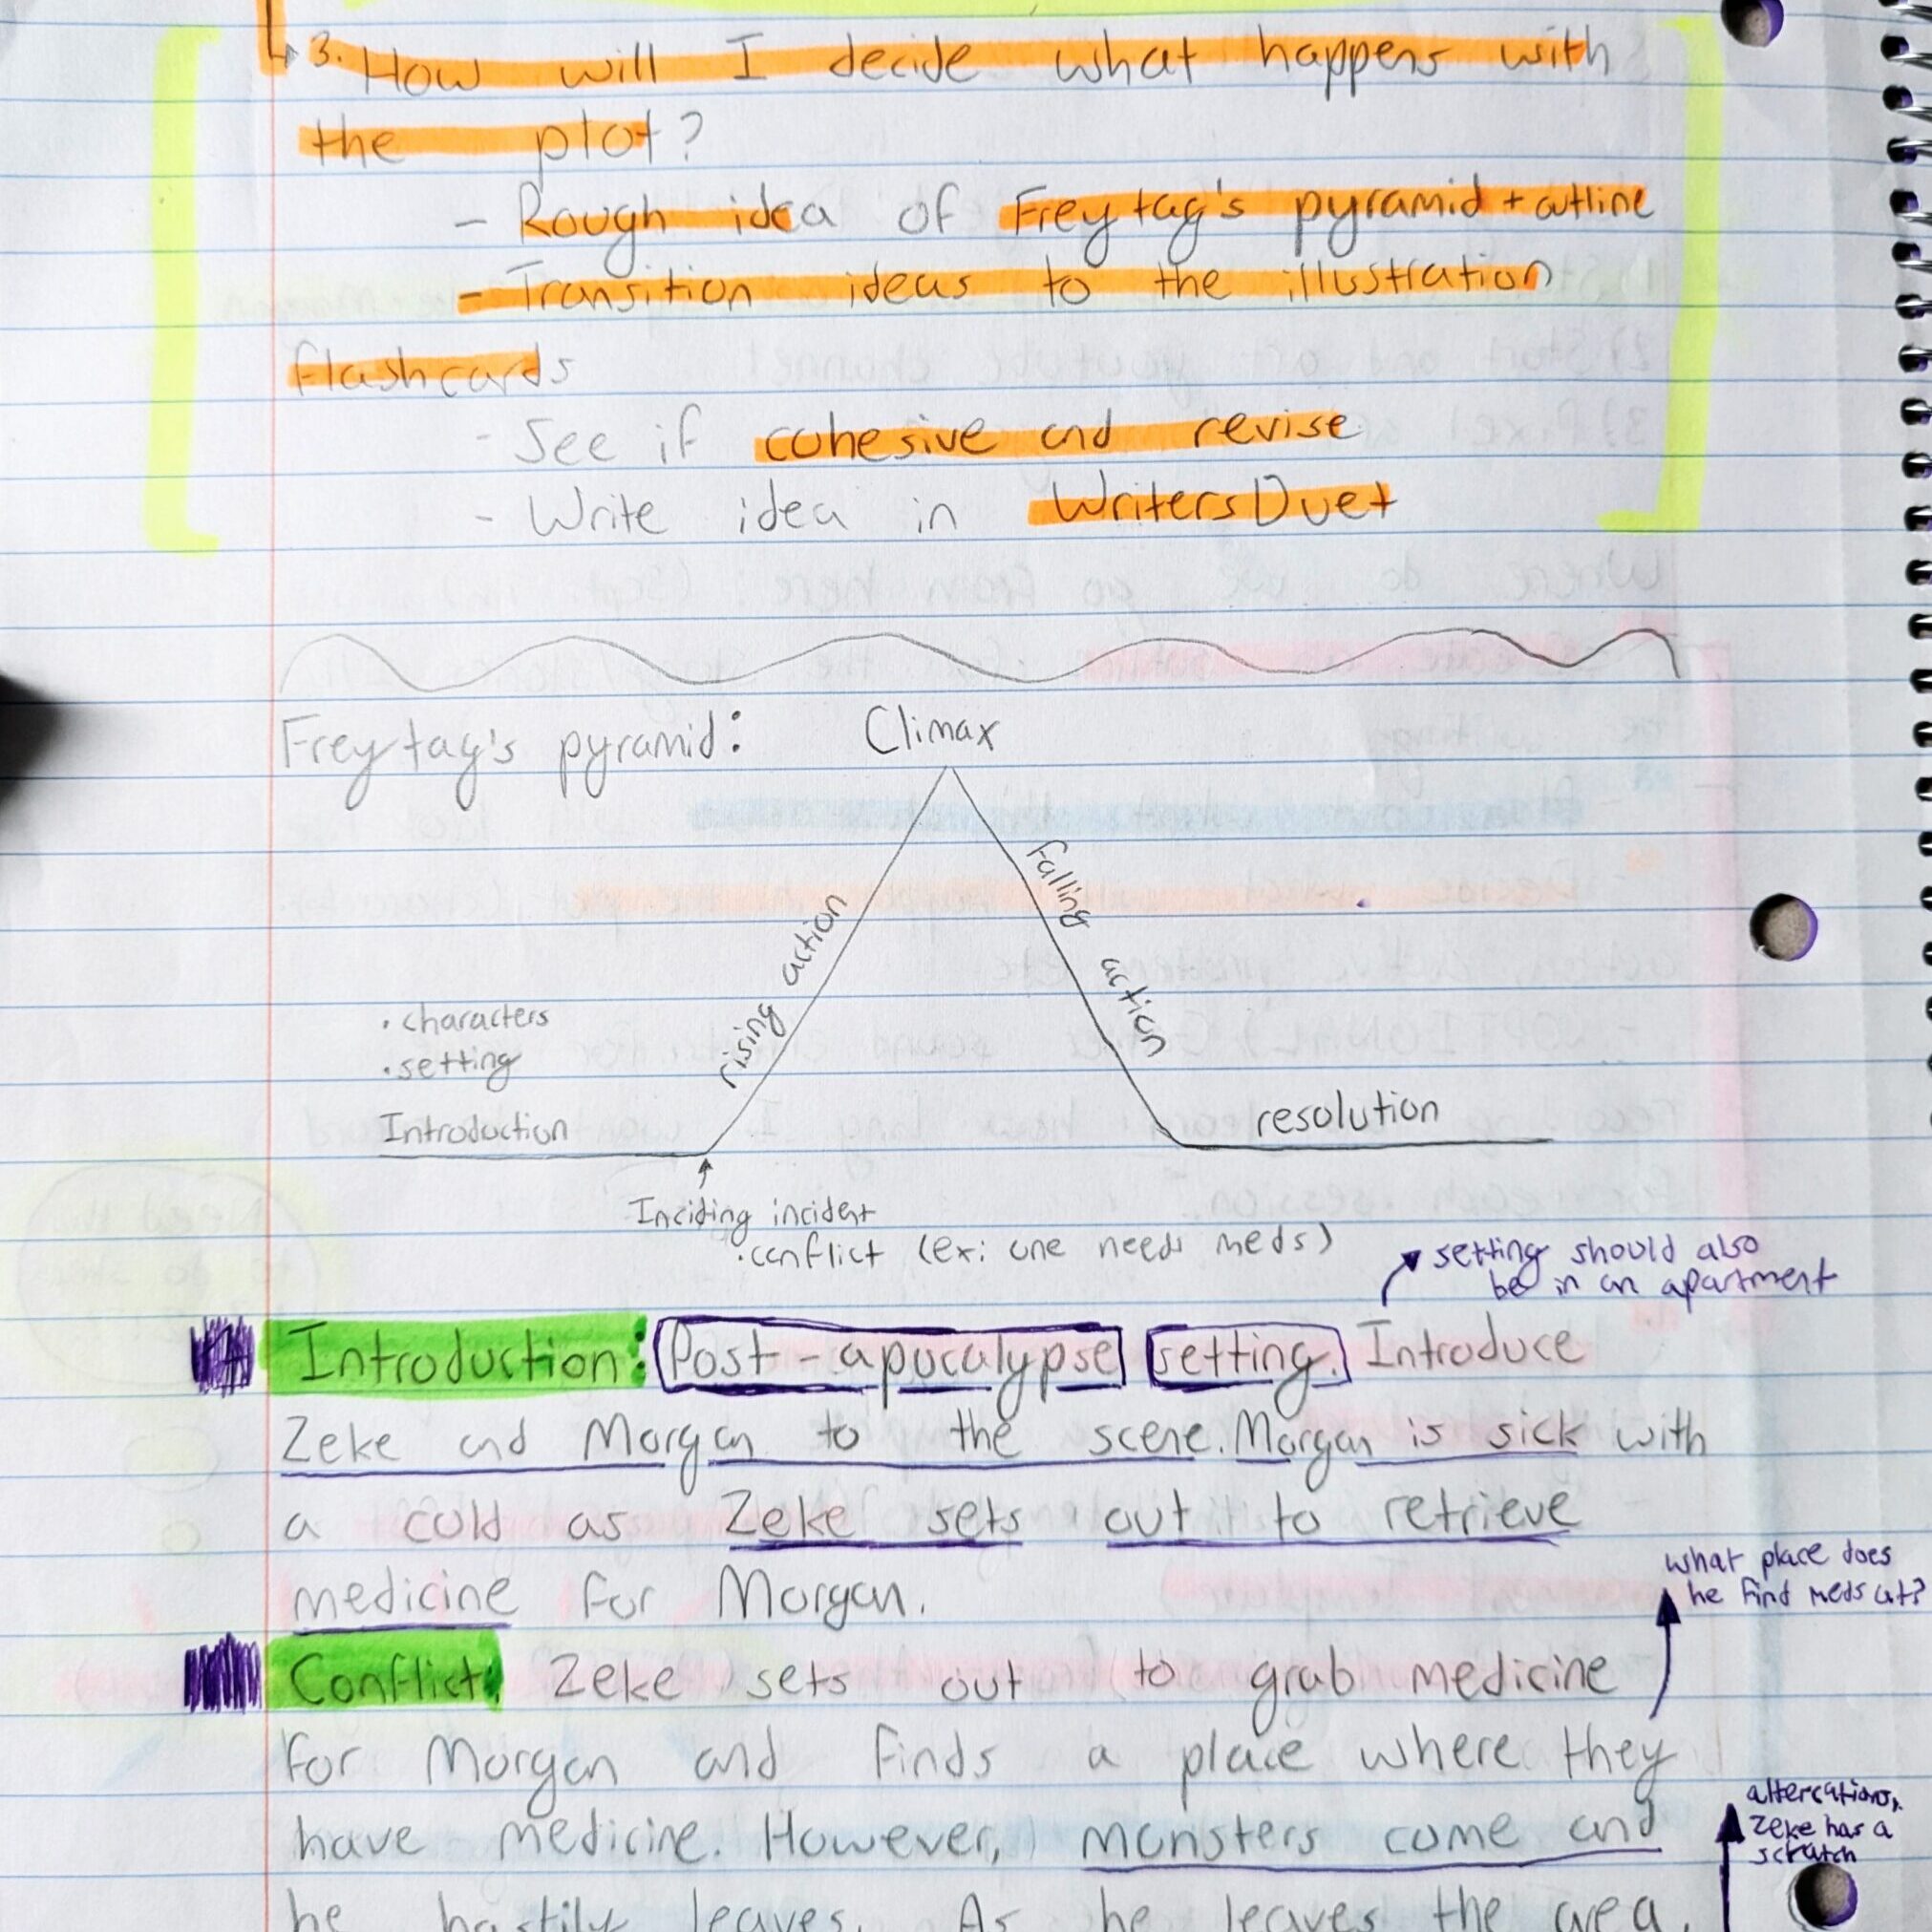 3. How will I decide what happens with
the plot?
- Rough idea of Freytag's pyramid + outline
- Transition ideas to the illustration
flashcards
- See if cohesive and revise
- Write idea in WritersDuet
Freytag's pyramid:
Climax
rising action
falling action
• characters
• setting
Introduction
resolution
Inciding incident
• conflict (ex: one needs meds)
setting should also
be in an apartment
Introduction: Post-apocalypse setting. Introduce
Zeke and Morgan to the scene. Morgan is sick with
a cold as Zeke sets out to retrieve
medicine for Morgan.
what place does
he find meds at?
Conflict: Zeke sets out to grab medicine
for Morgan and finds a place where they
have medicine. However, monsters come and
altercations,
Zeke has a
scratch
he hastily leaves. As he leaves the area,